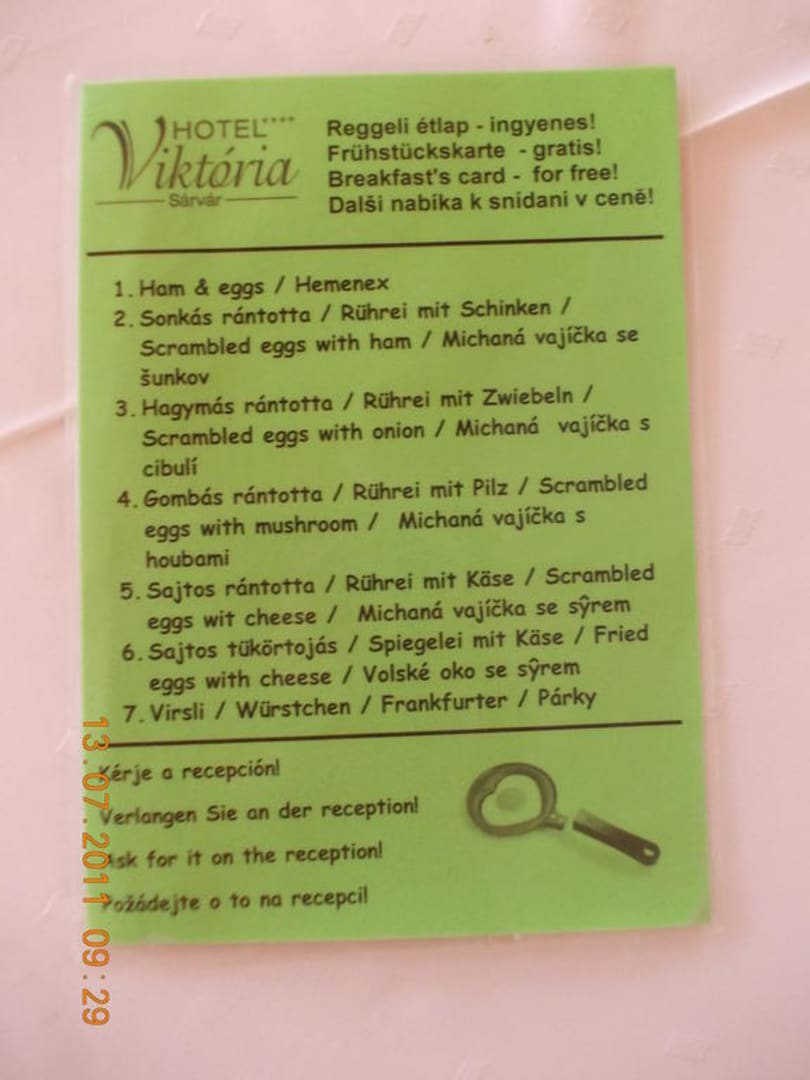 HOTEL****
Viktória
Sárvár
Reggeli étlap - ingyenes!
Frühstückskarte - gratis!
Breakfast's card - for free!
Dalši nabika k snídani v ceně!
1. Ham & eggs / Hemenex
2. Sonkás rántotta / Rührei mit Schinken /
Scrambled eggs with ham / Michaná vajíčka se
šunkov
3. Hagymás rántotta / Rührei mit Zwiebeln /
Scrambled eggs with onion / Michaná vajíčka s
cibulí
4. Gombás rántotta / Rührei mit Pilz / Scrambled
eggs with mushroom / Michaná vajíčka s
houbami
5. Sajtos rántotta / Rührei mit Käse / Scrambled
eggs wit cheese / Michaná vajíčka se sŷrem
6. Sajtos tükörtojás / Spiegelei mit Käse / Fried
eggs with cheese / Volské oko se sŷrem
7. Virsli / Würstchen / Frankfurter / Párky
Kérje a recepción!
Verlangen Sie an der reception!
Ask for it on the reception!
Požádejte o to na recepci!
13.07.2011 09:29